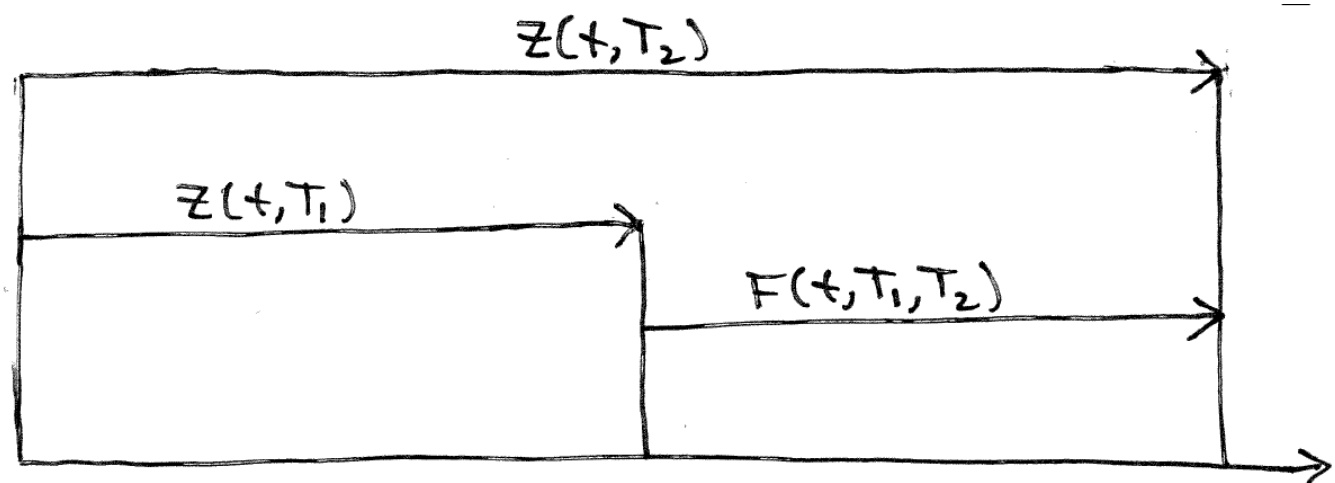 Z(t,T₂)
Z(t,T₁)
F(t,T₁,T₂)